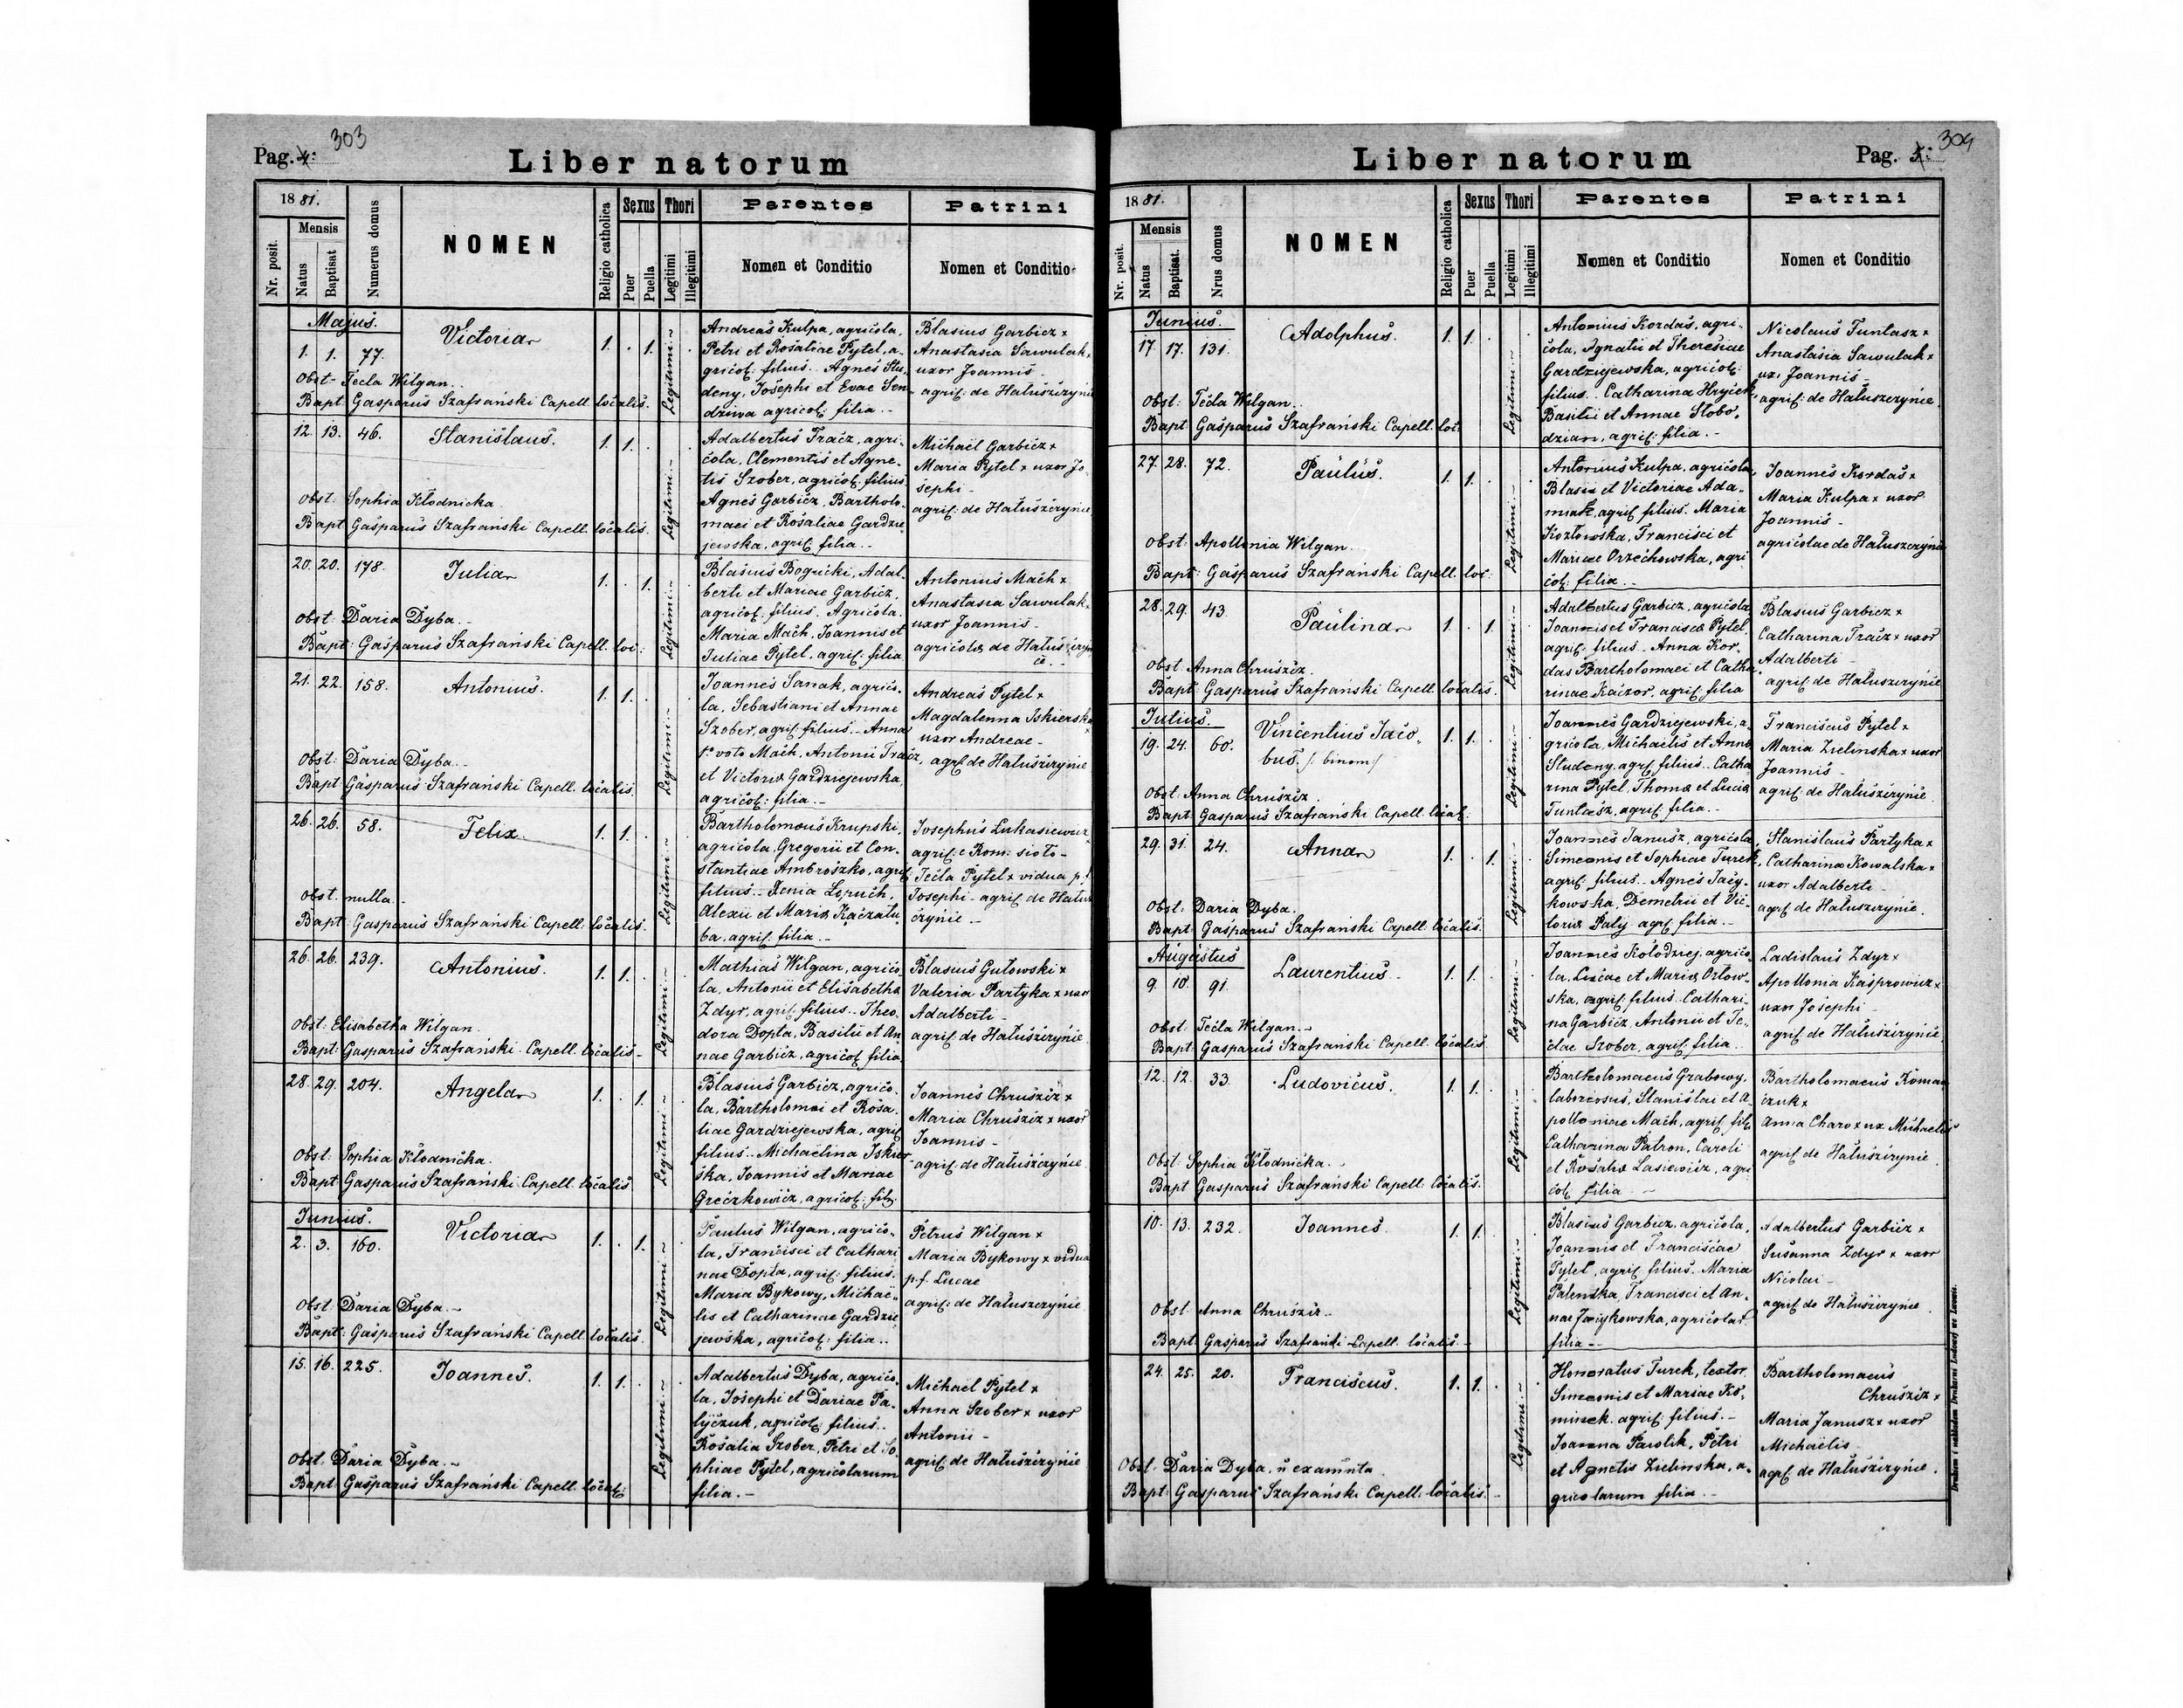 Pag. 4: 303
Liber natorum
1881.
Nr. posit.
Mensis
Natus
Baptisat
Numerus domus
NOMEN
Religio catholica
Sexus
Puer
Puella
Thori
Legitimi
Illegitimi
Parentes
Nomen et Conditio
Patrini
Nomen et Conditio
Majus.
1. 1. 77.
Victoria
1. . 1.
Legitimi
Andreas Kulpa, agricola,
Petri et Rosaliae Pytel, a-
gricol: filius. Agnes Stu-
deny, Josephi et Evae Sen-
dziwa agricol: filia.
Blasius Garbicz x
Anastasia Sawulak x
uxor Joannis
agric: de Hałuszczynie
Obst. Tecla Wilgan.
Bapt Gasparus Szafrański Capell localis.
12. 13. 46.
Stanislaus.
1. 1.
Legitimi
Adalbertus Tracz, agri-
cola, Clementis et Agne-
tis Szober, agricol: filius
Agnes Garbicz, Bartholo-
maei et Rosaliae Gardzie
jewska, agric: filia.
Michael Garbicz x
Maria Pytel x uxor Jo
sephi -
agric: de Hałuszczynie
Obst: Sophia Kłodnicka
Bapt Gasparus Szafrański Capell localis.
20. 20. 178.
Julia
1. . 1.
Legitimi
Blasius Bogucki, Adal-
berti et Mariae Garbicz,
agricol: filius. Agricola.
Maria Mach, Joannis et
Juliae Pytel, agric: filia
Antonius Mach x
Anastasia Sawulak x
uxor Joannis -
agricolae de Hałuszczyn
ie.
Obst: Daria Dyba.
Bapt: Gasparus Szafrański Capell. loc:
21. 22. 158.
Antonius.
1. 1.
Legitimi
Joannes Sanak, agrico-
la, Sebastiani et Annae
Szober, agric: filius. Anna
1º voto Mach, Antonii Tracz,
et Victoriæ Gardziejewska,
agricol: filia.
Andreas Pytel x
Magdalenna Iskierska x
uxor Andreae -
agric: de Hałuszczynie
Obst: Daria Dyba.
Bapt Gasparus Szafrański Capell. localis.
26. 26. 58.
Felix
1. 1.
Legitimi
Bartholomeus Krupski,
agricola, Gregorii et Con-
stantiae Ambroszko, agric:
filius. Xenia Łoruch,
Alexii et Mariæ Kaczału-
ba. agric: filia.
Josephus Łukasiewicz x
agric: e Rom. sioło -
Tecla Pytel x vidua p.f.
Josephi - agric: de Hałusz
czynie -
Obst. nulla.
Bapt: Gasparus Szafrański Capell: localis.
26. 26. 239.
Antonius.
1. 1.
Legitimi
Mathias Wilgan, agrico-
la, Antonii et Elisabethæ
Zdyr, agric: filius. Theo-
dora Dopta, Basilii et An
nae Garbicz, agricol: filia
Blasius Gutowski x
Valeria Partyka x uxor
Adalberti -
agric: de Hałuszczynie
Obst: Elisabetha Wilgan.
Bapt: Gasparus Szafrański Capell. localis -
28. 29. 204.
Angela
1. . 1.
Legitimi
Blasius Garbicz, agrico-
la, Bartholomæi et Rosa-
liae Gardziejewska, agric:
filius. Michaelina Iskier
ska, Joannis et Mariae
Greczkowicz, agricol: fil:
Joannes Chruszcz x
Maria Chruszcz x uxor
Joannis -
agric: de Hałuszczynie
Obst: Sophia Kłodnicka.
Bapt: Gasparus Szafrański Capell. localis
Junius.
2. 3. 160.
Victoria
1. . 1.
Legitimi
Paulus Wilgan, agrico-
la, Francisci et Cathari
nae Dopta, agric: filius.
Maria Bykowy, Michae-
lis et Catharinae Gardzie
jewska, agricol: filia.
Petrus Wilgan x
Maria Bykowy x vidua
p.f. Lucae
agric: de Hałuszczynie
Obst: Daria Dyba. -
Bapt: Gasparus Szafrański Capell. localis.
15. 16. 225.
Joannes.
1. 1.
Legitimi
Adalbertus Dyba, agrico-
la, Josephi et Dariae Pa-
lijczuk, agricol: filius.
Rosalia Szober, Petri et So-
phiae Pytel, agricolarum
filia. -
Michael Pytel x
Anna Szober x uxor
Antonii -
agric: de Hałuszczynie
Obst: Daria Dyba. -
Bapt: Gasparus Szafrański Capell. local:
Liber natorum
Pag. 5: 304
1881.
Nr. posit.
Mensis
Natus
Baptisat.
Nrus domus
NOMEN
Religio catholica
Sexus
Puer
Puella
Thori
Legitimi
Illegitimi
Parentes
Nomen et Conditio
Patrini
Nomen et Conditio
Junius.
17. 17. 131.
Adolphus.
1. 1.
Legitimi
Antonius Kordas, agri-
cola, Ignatii et Theresiae
Gardziejewska, agricol:
filius. Catharina Hryciek,
Basilii et Annae Słobo-
dzian, agric: filia. -
Nicolaus Tuntasz x
Anastasia Sawulak x
ux: Joannis -
agric: de Hałuszczynie.
Obst: Tecla Wilgan.
Bapt Gasparus Szafrański Capell. loc:
27. 28. 72.
Paulus.
1. 1.
Legitimi
Antonius Kulpa, agricola,
Blasii et Victoriae Ada-
miak, agric: filius. Maria
Kozłowska, Francisci et
Mariae Orzechowska, agri
col: filia.
Joannes Kordas x
Maria Kulpa x uxor
Joannis -
agricolae de Hałuszczynie
Obst: Apollonia Wilgan.
Bapt: Gasparus Szafrański Capell. loc:
28. 29. 43.
Paulina
1. . 1.
Legitimi
Adalbertus Garbicz, agricola,
Joannis et Franciscæ Pytel,
agric: filius. Anna Kor-
das Bartholomaei et Catha
rinae Kaczor, agric: filia
Blasius Garbicz x
Catharina Tracz x uxor
Adalberti -
agric: de Hałuszczynie
Obst. Anna Chruszcz.
Bapt: Gasparus Szafrański Capell. localis.
Julius.
19. 24. 60.
Vincentius Jaco-
bus. /: binom /
1. 1.
Legitimi
Joannes Gardziejewski, a-
gricola, Michaelis et Annæ
Studeny, agric: filius. Catha
rina Pytel, Thomæ et Luciæ
Tuntasz, agric: filia. -
Franciscus Pytel x
Maria Zielinska x uxor
Joannis -
agric: de Hałuszczynie
Obst: Anna Chruszcz.
Bapt: Gasparus Szafrański Capell. local:
29. 31. 24.
Anna
1. . 1.
Legitimi
Joannes Janusz, agricola,
Simeonis et Sophiae Turek,
agric: filius. Agnes Jacy-
kowska, Demetrii et Vic-
toriæ Paly agric: filia. -
Stanislaus Partyka x
Catharina Kowalska x
uxor Adalberti -
agric: de Hałuszczynie.
Obst: Daria Dyba.
Bapt: Gasparus Szafrański Capell. localis.
Augustus
9. 10. 91.
Laurentius -
1. 1.
Legitimi
Joannes Kołodziej, agrico-
la, Lucae et Mariæ Orłow-
ska, agric: filius. Cathari-
na Garbicz, Antonii et Te-
clae Szober, agric: filia.
Ladislaus Zdyr x
Apollonia Kasprowicz x
uxor Josephi -
agric: de Hałuszczynie
Obst: Tecla Wilgan. -
Bapt: Gasparus Szafrański Capell. localis
12. 12. 33.
Ludovicus.
1. 1.
Legitimi
Bartholomaeus Grabowy,
laboriosus, Stanislai et A-
polloniae Mach, agric: fil:
Catharina Patron, Caroli
et Rosaliæ Lasiewicz, agri
col: filia -
Bartholomaeus Roman
czuk x
Anna Charo x ux Michaelis
agric: de Hałuszczynie
Obst: Sophia Kłodnicka. -
Bapt Gasparus Szafrański Capell. localis.
10. 13. 232.
Joannes.
1. 1.
Legitimi
Blasius Garbicz, agricola,
Joannis et Franciscae
Pytel, agric: filius. Maria
Palenska, Francisci et An-
nae Jacykowska, agricolar
filia -
Adalbertus Garbicz x
Susanna Zdyr x uxor
Nicolai -
agric: de Hałuszczynie
Obst. Anna Chruszcz -
Bapt: Gasparus Szafrański Capell. localis. -
24. 25. 20.
Franciscus.
1. 1.
Legitimi
Honoratus Turek, textor
Simeonis et Mariae Ko-
minek, agric: filius. -
Joanna Pawlik, Petri
et Agnetis Zielinska, a-
gricolarum filia. -
Bartholomaeus
Chruszcz x
Maria Janusz x uxor
Michaelis
agric: de Hałuszczynie.
Obst: Daria Dyba, n examnta.
Bapt: Gasparus Szafrański Capell: localis. -